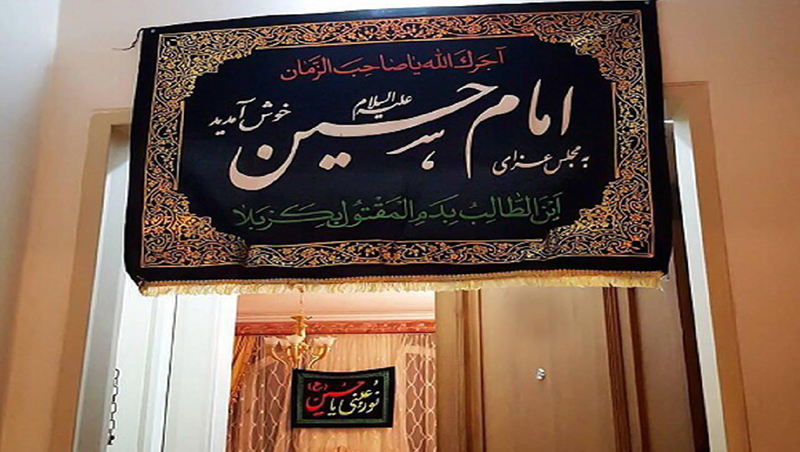 آجرك الله يا صاحب الزمان
به مجلس عزای امام حسین علیه السلام خوش آمدید
اَینَ الطّالِبُ بِدَمِ المَقتُولِ بِکَربَلا
نور عینی یا حسین (ع)